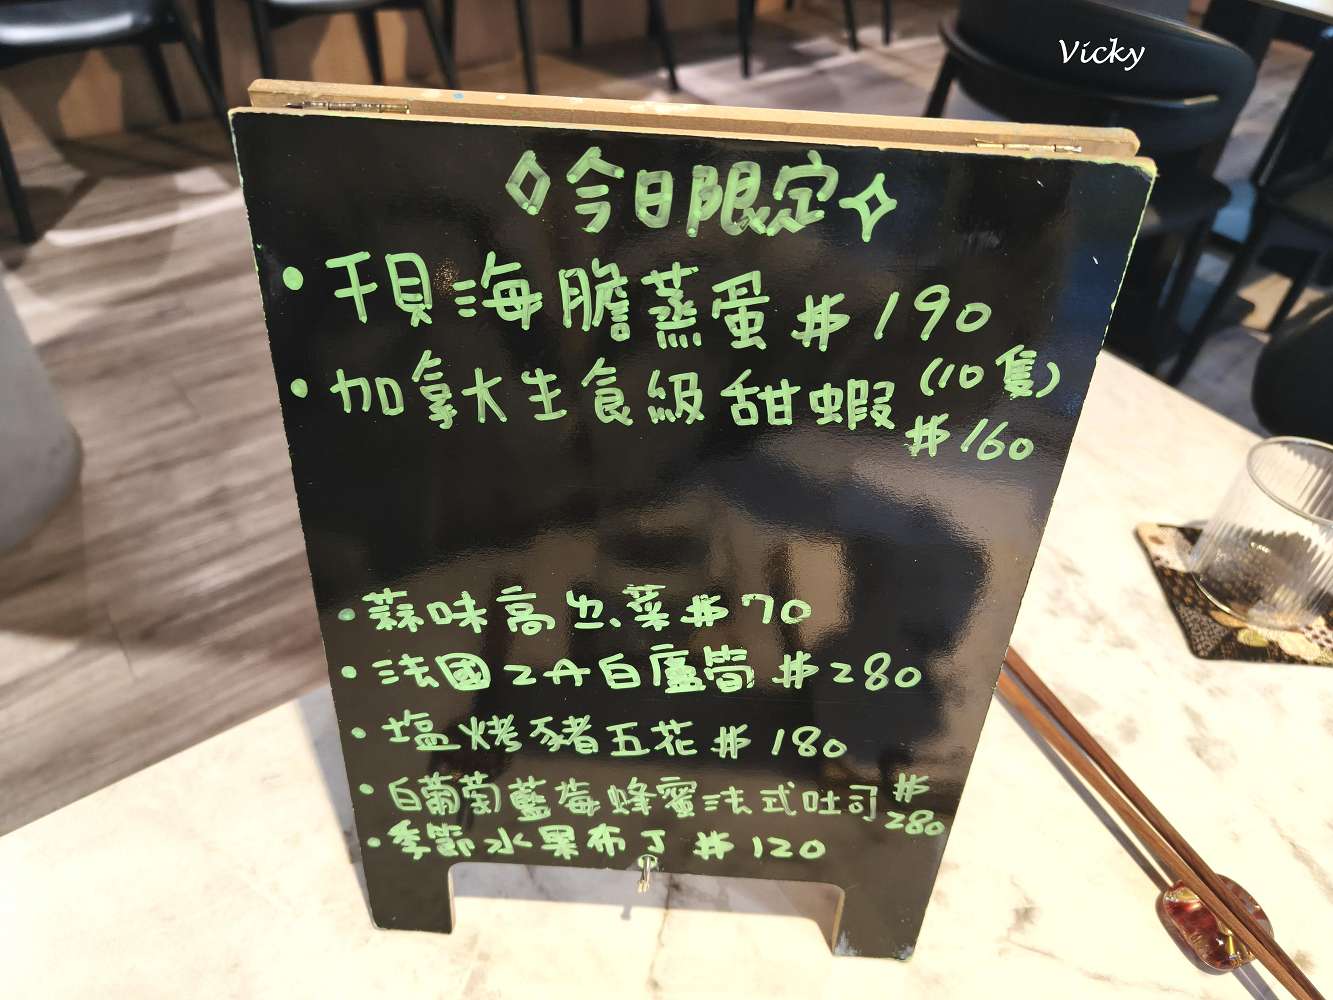 Vicky
今日限定
・干貝海膽蒸蛋 $190
・加拿大生食級甜蝦 (10隻)
$160
・蒜味高山菜 $70
・法國2A白蘆筍 $280
・塩烤豬五花 $180
・白葡萄藍莓蜂蜜法式吐司 $
280
・季節水果布丁 $120